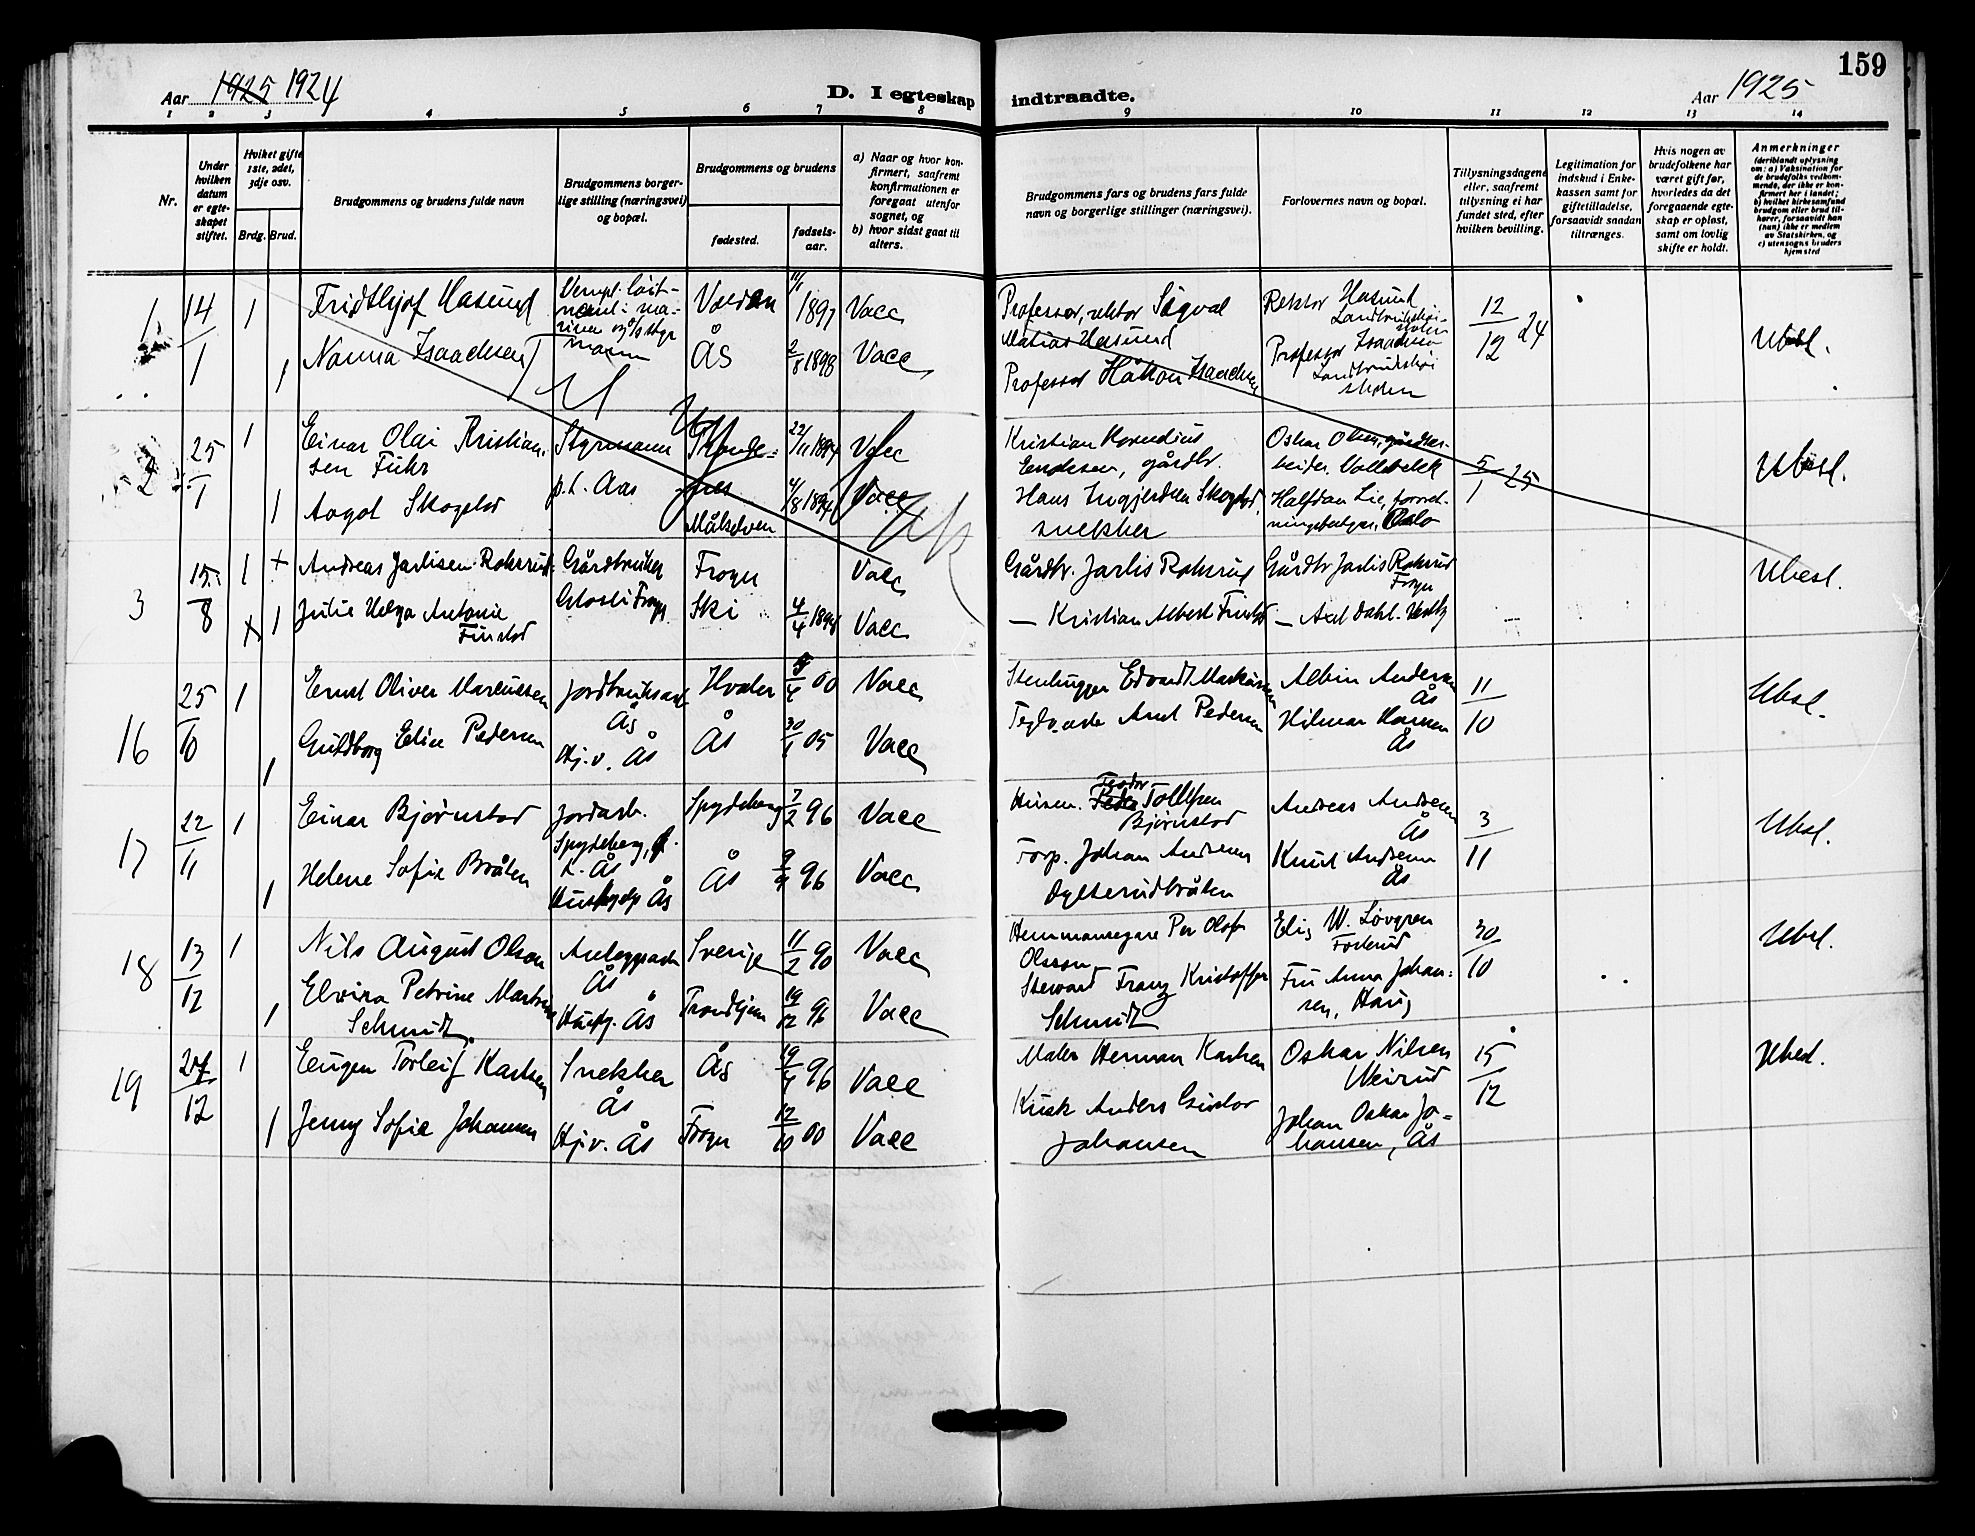 159
Aar 1925 1924
D. I egteskap indtraadte.
Aar 1925
1 2 3 4 5 6 7 8 9 10 11 12 13 14
Nr.
Under hvilken datum er egteskapet stiftet.
Hvilket gifte 1ste, 2det, 3dje osv.
Brdg. Brud.
Brudgommens og brudens fulde navn
Brudgommens borgerlige stilling (næringsvei) og bopæl.
Brudgommens og brudens
fødested.
fødselsaar.
a) Naar og hvor konfirmert, saafremt konfirmationen er foregaat utenfor sognet, og
b) hvor sidst gaat til alters.
Brudgommens fars og brudens fars fulde navn og borgerlige stillinger (næringsvei).
Forlovernes navn og bopæl.
Tillysningsdagene eller, saafremt tillysning ei har fundet sted, efter hvilken bevilling.
Legitimation for indskud i Enkekassen samt for giftetilladelse, forsaavidt saadan tiltrænges.
Hvis nogen av brudefolkene har været gift før, hvorledes da det foregaaende egteskap er opløst, samt om lovlig skifte er holdt.
Anmerkninger
(deriblandt oplysning om: a) Vaksination for de brudefolks vedkommende, der ikke er konfirmert her i landet; b) hvilket kirkesamfund brudgom eller brud tilhører, forsaavidt han (hun) ikke er medlem av Statskirken, og c) utensogns bruders hjemsted
1 14/1 1 Fridthjof Hasund Volden 11/1 1897 Vacc
Professor, rektor Sigval Matias Hasund
Rektor Hasund Landbrukshøiskolen
12/12 24 Ubesl.
1 Nanna Isaachsen Ås 2/8 1898 Vacc
Professor Håkon Isaachsen
Professor Isaachsen Landbrukshøiskolen
2 25/1 1 Einar Olai Kristiansen Fuhr Styrmann p.t. Aas 22/11 1894 Vacc
Kristian Kornelius Endesen, gårdbr.
Oskar Olsen, gårdsarbeider, Vollebekk
5/1 25 Ubesl.
1 Aagot Skogstad Målselven 4/8 1894 Vacc
Hans Ingjerdsen Skogstad, snekker
Halfdan Lie, Oslo
3 15/8 1 + Andreas Jarlisen Rokerud Gårdbruker Frogn Vacc
Gårdbr. Jarlis Rokerud
Gårdbr Jarlis Rokerud Frogn
Ubesl.
+ 1 Julie Helga Antonie Finstad Ski 4/4 1898 Vacc
— Kristian Albert Finstad
— Axel Dahl.
16 25/10 1 Ernst Oliver Marcussen Jordbruksarb Ås Hvaler 5/4 00 Vacc
Stenhugger Edvardt Markussen
Albin Andersen Ås
11/10 Ubesl.
1 Guldborg Elise Pedersen Hj.v. Ås Ås 30/1 05 Vacc
Axel Pedersen
Hilmar Hansen Ås
17 22/11 1 Einar Bjørnstad Jordarb. Spydeberg, p.t. Ås Spydeberg 7/2 96 Vacc
Husm. Peder Teodor Tollefsen Bjørnstad
Andreas Andersen Ås
3/11 Ubesl.
1 Helene Sofie Bråten Hushjelp Ås Ås 9/9 96 Vacc
Forp. Johan Andersen Dyltterudbråten
Knut Andersen Ås
18 13/12 1 Nils August Olsson Anleggsarb Ås Sverige 11/2 90 Vacc
Hemmansegare Per Olof Olsson
Elis W. Lövgren
30/10 Ubesl.
1 Elvira Petrine Schmidt Hushj. Ås Trondhjem 19/12 96 Vacc
Steward Franz Kristoffer Schmidt
Fru Anna Johansen, Haug
19 27/12 1 Eugen Torleif Karlsen Snekker Ås Ås 19/4 96 Vacc
Maler Herman Karlsen
Oskar Nilsen
15/12 Ubesl.
1 Jenny Sofie Johansen Hj.v. Ås Frogn 12/10 00 Vacc
Kusk Anders Gustav Johansen
Johan Oskar Johansen, Ås